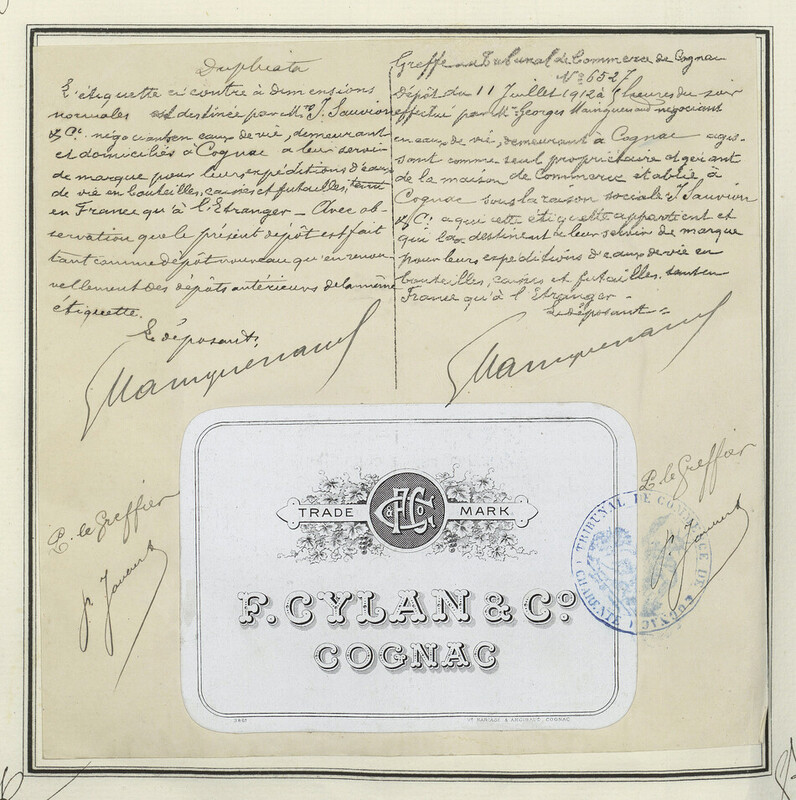 Duplicata
L'étiquette ci contre à dimensions
normales est destinée par Mr J. Sauvion
& Cie négociants en eaux de vie, demeurant
et domiciliés à Cognac à leur servir
de marque pour leurs expéditions d'eaux
de vie en bouteilles, caisses et futailles, tant
en France qu'à l'Etranger - Avec ob-
servation que le présent dépôt est fait
tant comme dépôt nouveau qu'en renou-
vellement des dépôts antérieurs de la même
étiquette.
Le déposant:
Greffe du Tribunal de Commerce de Cognac
No 6527
Dépôt du 11 Juillet 1912 à heures du soir
effectué par Mr Georges Mainguenaud négociant
en eaux de vie, demeurant à Cognac agis-
sant comme seul propriétaire et gérant
de la maison de Commerce établie à
Cognac sous la raison sociale J. Sauvion
& Cie à qui cette étiquette appartient et
qui la destinent à leur servir de marque
pour leurs expéditions d'eaux de vie en
bouteilles, caisses et futailles tant en
France qu'à l'étranger -
Le déposant =
GMainguenaud
GMainguenaud
P. le Greffier
P. le Greffier
TRADE MARK
F. CYLAN & Co
COGNAC
TRIBUNAL DE COMMERCE DE COGNAC (CHARENTE)
COGNAC